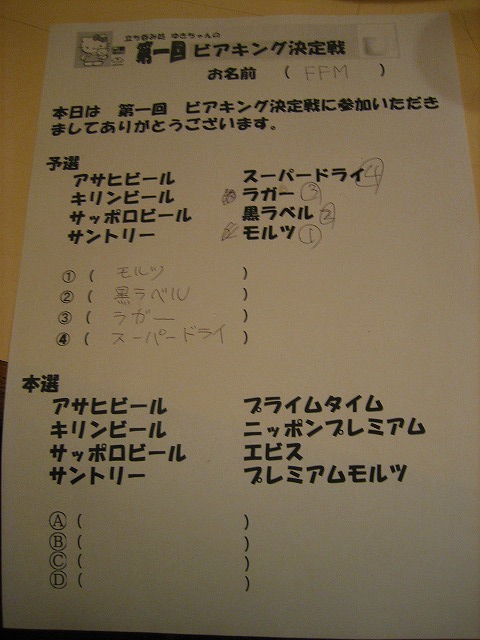 立ち呑み処 ゆきちゃんの
第一回 ビアキング決定戦
お名前 ( FFM )
本日は 第一回 ビアキング決定戦に参加いただき
ましてありがとうございます。
予選
アサヒビール スーパードライ ④
キリンビール ラガー ③
サッポロビール 黒ラベル ②
サントリー モルツ ①
① ( モルツ )
② ( 黒ラベル )
③ ( ラガー )
④ ( スーパードライ )
本選
アサヒビール プライムタイム
キリンビール ニッポンプレミアム
サッポロビール エビス
サントリー プレミアムモルツ
Ⓐ ( )
Ⓑ ( )
Ⓒ ( )
Ⓓ ( )